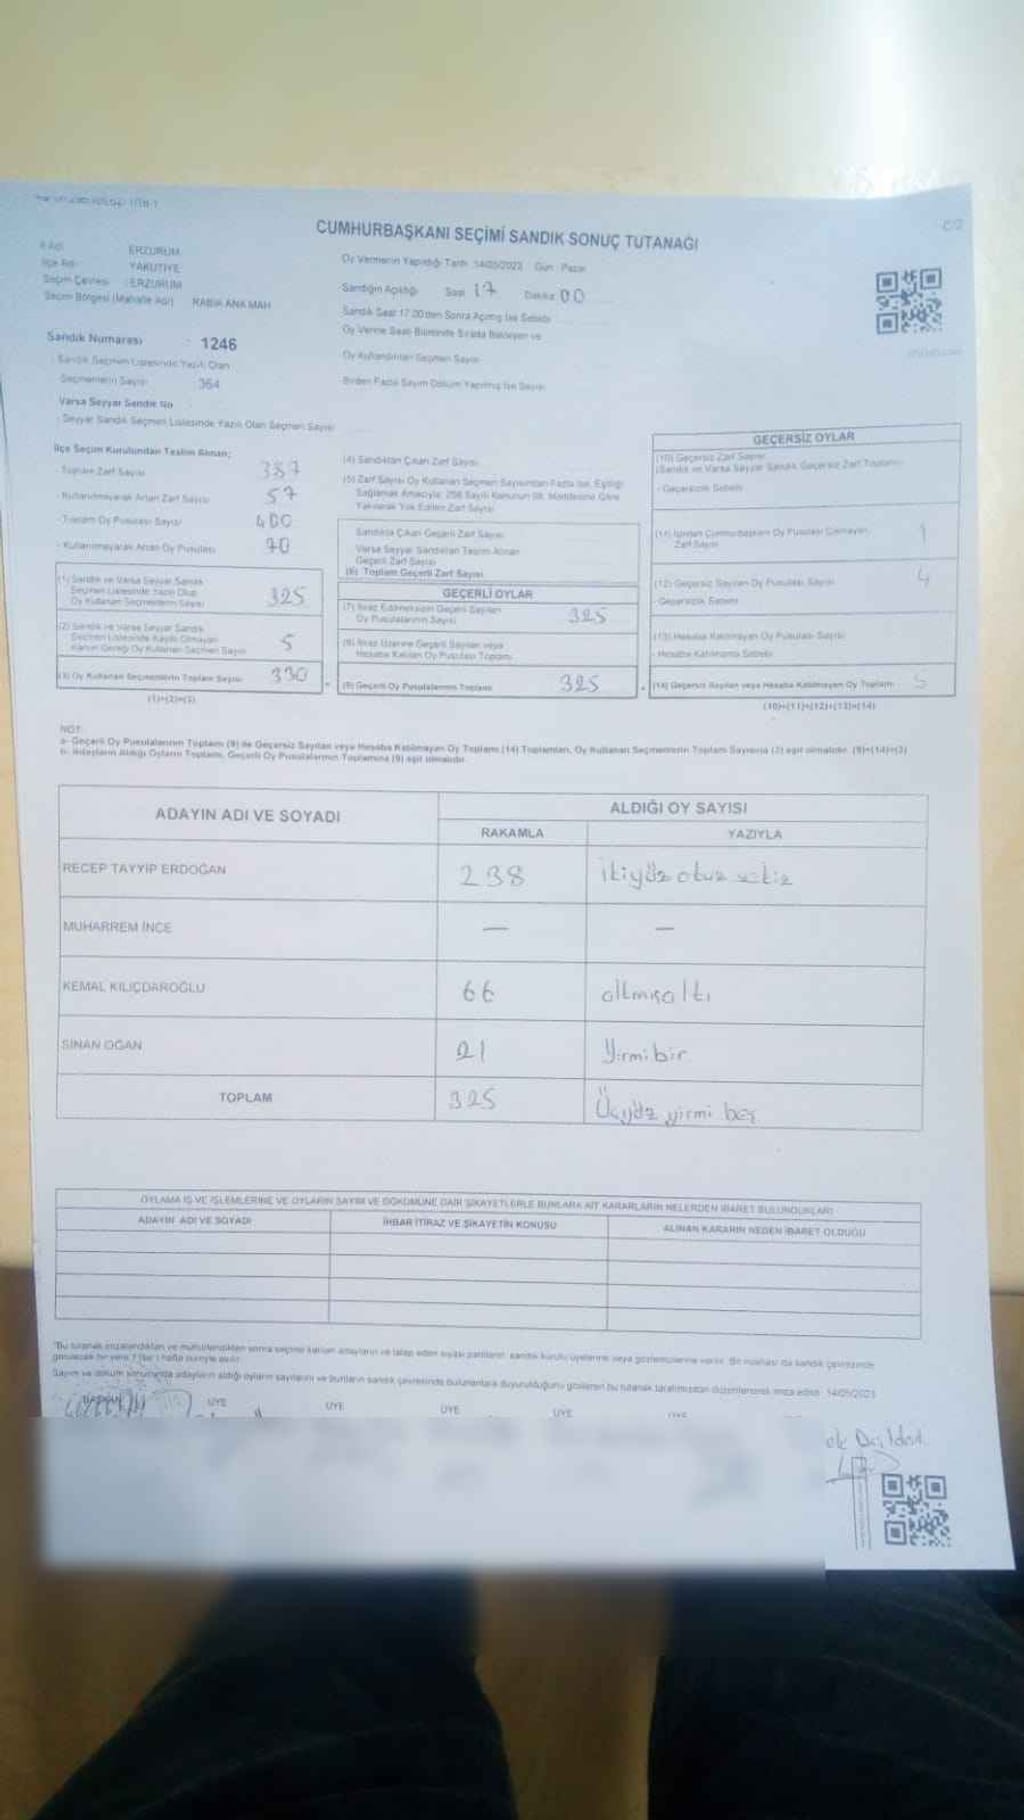 CUMHURBAŞKANI SEÇİMİ SANDIK SONUÇ TUTANAĞI
İl Adı ERZURUM
İlçe Adı YAKUTİYE
Seçim Çevresi : ERZURUM
Seçim Bölgesi (Mahalle Adı) RABİA ANA MAH
Sandık Numarası : 1246
Sandık Seçmen Listesinde Yazılı Olan
Seçmenlerin Sayısı 364
Varsa Seyyar Sandık No
Seyyar Sandık Seçmen Listesinde Yazılı Olan Seçmen Sayısı
Oy Vermenin Yapıldığı Tarih 14/05/2023 Gün : Pazar
Sandığın Açıldığı Saat 17 Dakika 00
Sandık Saat 17.00'den Sonra Açılmış İse Sebebi
Oy Verme Saati Bitiminde Sırada Bekleyen ve
Oy Kullandırılan Seçmen Sayısı
Birden Fazla Sayım Döküm Yapılmış İse Sayısı
İlçe Seçim Kurulundan Teslim Alınan;
Toplam Zarf Sayısı 387
Kullanılmayarak Artan Zarf Sayısı 57
Toplam Oy Pusulası Sayısı 400
Kullanılmayarak Artan Oy Pusulası 70
(1) Sandık ve Varsa Seyyar Sandık
Seçmen Listesinde Yazılı Olup
Oy Kullanan Seçmenlerin Sayısı 325
(2) Sandık ve Varsa Seyyar Sandık
Seçmen Listesinde Kayıtlı Olmayan
Kanun Gereği Oy Kullanan Seçmen Sayısı 5
(3) Oy Kullanan Seçmenlerin Toplam Sayısı 330
(1)+(2)=(3)
(4) Sandıktan Çıkan Zarf Sayısı
(5) Zarf Sayısı Oy Kullanan Seçmen Sayısından Fazla İse, Eşitliği
Sağlamak Amacıyla, 298 Sayılı Kanunun 98. Maddesine Göre
Yakılarak Yok Edilen Zarf Sayısı
Sandıkta Çıkan Geçerli Zarf Sayısı
Varsa Seyyar Sandıktan Teslim Alınan
Geçerli Zarf Sayısı
(6) Toplam Geçerli Zarf Sayısı
GEÇERLİ OYLAR
(7) İtiraz Edilmeksizin Geçerli Sayılan
Oy Pusulalarının Sayısı 325
(8) İtiraz Üzerine Geçerli Sayılan veya
Hesaba Katılan Oy Pusulası Toplamı
(9) Geçerli Oy Pusulalarının Toplamı 325
GEÇERSİZ OYLAR
(10) Geçersiz Zarf Sayısı
(Sandık ve Varsa Seyyar Sandık Geçersiz Zarf Toplamı)
- Geçersizlik Sebebi
(11) İçinden Cumhurbaşkanı Oy Pusulası Çıkmayan
Zarf Sayısı 1
(12) Geçersiz Sayılan Oy Pusulası Sayısı 4
- Geçersizlik Sebebi
(13) Hesaba Katılmayan Oy Pusulası Sayısı
- Hesaba Katılmama Sebebi
(14) Geçersiz Sayılan veya Hesaba Katılmayan Oy Toplamı 5
(10)+(11)+(12)+(13)=(14)
NOT:
a- Geçerli Oy Pusulalarının Toplamı (9) ile Geçersiz Sayılan veya Hesaba Katılmayan Oy Toplamı (14) Toplamları, Oy Kullanan Seçmenlerin Toplam Sayısına (3) eşit olmalıdır. (9)+(14)=(3)
b- Adayların Aldığı Oyların Toplamı, Geçerli Oy Pusulalarının Toplamına (9) eşit olmalıdır.
ADAYIN ADI VE SOYADI ALDIĞI OY SAYISI
RAKAMLA YAZIYLA
RECEP TAYYİP ERDOĞAN 238 ikiyüz otuz sekiz
MUHARREM İNCE — —
KEMAL KILIÇDAROĞLU 66 altmışaltı
SİNAN OĞAN 21 Yirmibir
TOPLAM 325 Üçyüz yirmi beş
OYLAMA İŞ VE İŞLEMLERİNE VE OYLARIN SAYIM VE DÖKÜMÜNE DAİR ŞİKAYETLERLE BUNLARA AİT KARARLARIN NELERDEN İBARET BULUNDUKLARI
ADAYIN ADI VE SOYADI İHBAR İTİRAZ VE ŞİKAYETİN KONUSU ALINAN KARARIN NEDEN İBARET OLDUĞU
*Bu tutanak imzalandıktan ve mühürlendikten sonra seçime katılan adayların ve talep eden siyasi partilerin sandık kurulu üyelerine veya gözlemcilerine verilir. Bir nüshası da sandık çevresinde
görülecek bir yere 1 (bir) hafta süreyle asılır.
Sayım ve döküm sonunda adayların aldığı oyların sayılarını ve bunların sandık çevresinde bulunanlara duyurulduğunu gösteren bu tutanak tarafımızdan düzenlenerek imza edildi. 14/05/2023
ÜYE ÜYE ÜYE ÜYE ÜYE